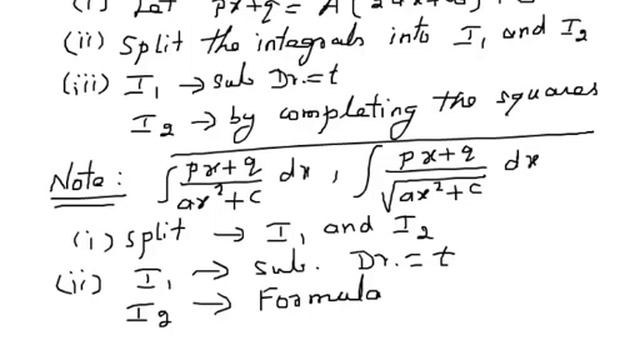 (i) Let px+q = A (
(ii) Split the integrals into I₁ and I₂
(iii) I₁ → sub Dr.=t
I₂ → by completing the squares
Note: ∫ px+q/ax²+c dx, ∫ px+q/√ax²+c dx
(i) split → I₁ and I₂
(ii) I₁ → sub. Dr.=t
I₂ → Formula